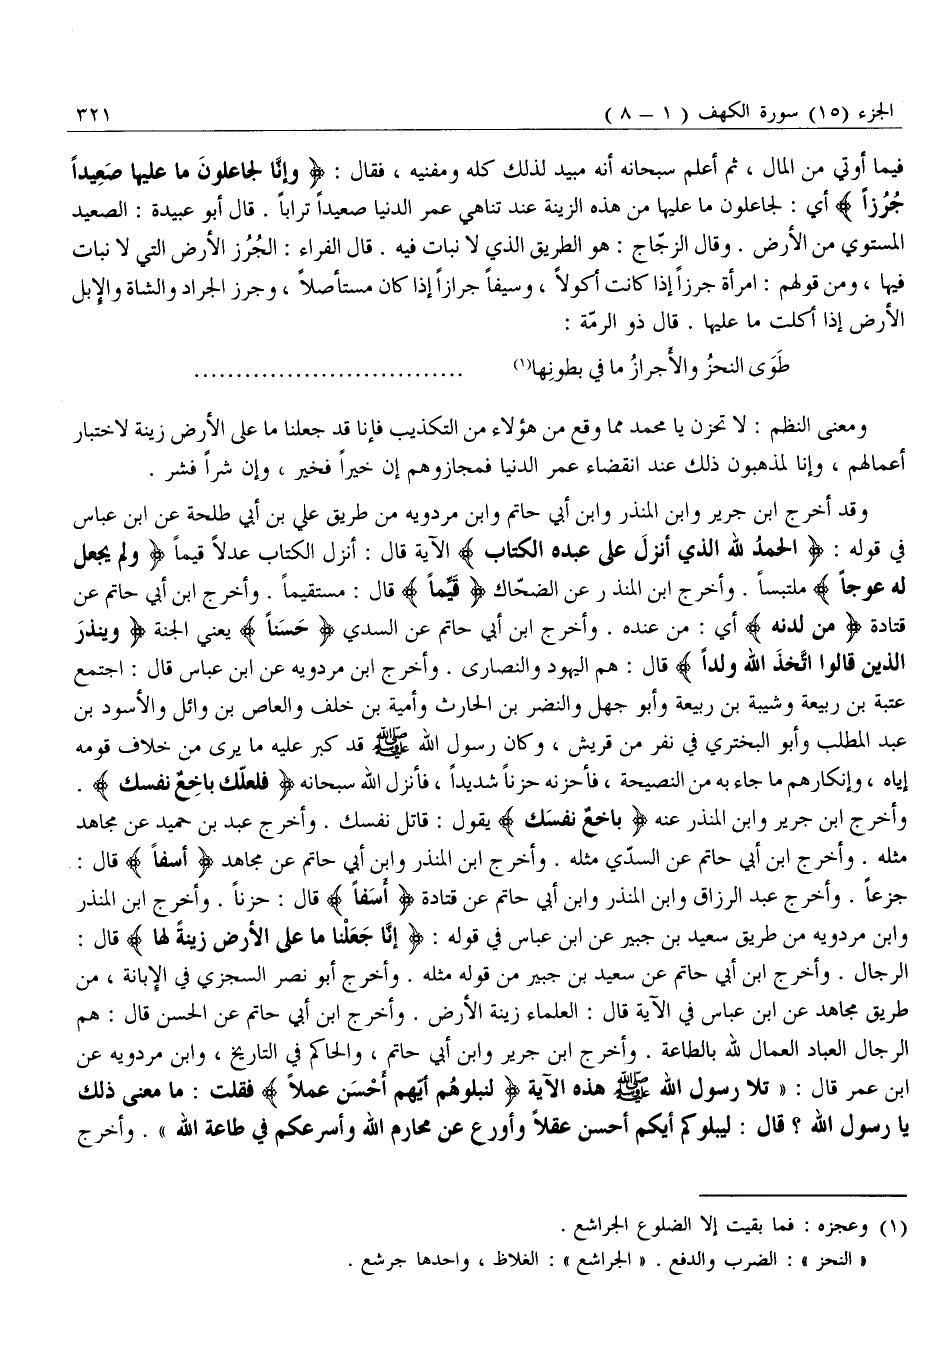 الجزء (١٥) سورة الكهف ( ١ – ٨ ) ٣٢١
فيما أوتي من المال ، ثم أعلم سبحانه أنه مبيد لذلك كله ومفنيه ، فقال : ﴿ وإنَّا لجاعلونَ ما عليها صَعِيداً
جُرُزاً ﴾ أي : لجاعلون ما عليها من هذه الزينة عند تناهي عمر الدنيا صعيداً تراباً . قال أبو عبيدة : الصعيد
المستوي من الأرض . وقال الزجّاج : هو الطريق الذي لا نبات فيه . قال الفراء : الجُرُز الأرض التي لا نبات
فيها ، ومن قولهم : امرأة جرزاً إذا كانت أكولاً ، وسيفاً جرازاً إذا كان مستأصلاً ، وجرز الجراد والشاة والإبل
الأرض إذا أكلت ما عليها . قال ذو الرمّة :
طَوَى النحزُ والأَجرازُ ما في بطونِها(١) ...............................
ومعنى النظم : لا تحزن يا محمد مما وقع من هؤلاء من التكذيب فإنا قد جعلنا ما على الأرض زينة لاختبار
أعمالهم ، وإنا لمذهبون ذلك عند انقضاء عمر الدنيا فمجازوهم إن خيراً فخير ، وإن شراً فشر .
وقد أخرج ابن جرير وابن المنذر وابن أبي حاتم وابن مردويه من طريق علي بن أبي طلحة عن ابن عباس
في قوله : ﴿ الحمدُ لله الذي أنزلَ على عبده الكتاب ﴾ الآية قال : أنزل الكتاب عدلاً قيماً ﴿ ولم يجعل
له عوجاً ﴾ ملتبساً . وأخرج ابن المنذ ر عن الضحّاك ﴿ قَيِّماً ﴾ قال : مستقيماً . وأخرج ابن أبي حاتم عن
قتادة ﴿ من لدنه ﴾ أي : من عنده . وأخرج ابن أبي حاتم عن السدي ﴿ حَسَناً ﴾ يعني الجنة ﴿ وينذرَ
الذين قالوا اتَّخذَ الله ولداً ﴾ قال : هم اليهود والنصارى . وأخرج ابن مردويه عن ابن عباس قال : اجتمع
عتبة بن ربيعة وشيبة بن ربيعة وأبو جهل والنضر بن الحارث وأمية بن خلف والعاص بن وائل والأسود بن
عبد المطلب وأبو البختري في نفر من قريش ، وكان رسول الله ﷺ قد كبر عليه ما يرى من خلاف قومه
إياه ، وإنكارهم ما جاء به من النصيحة ، فأحزنه حزناً شديداً ، فأنزل الله سبحانه ﴿ فلعلّك باخِعٌ نفسك ﴾ .
وأخرج ابن جرير وابن المنذر عنه ﴿ باخعٌ نفسَك ﴾ يقول : قاتل نفسك . وأخرج عبد بن حميد عن مجاهد
مثله . وأخرج ابن أبي حاتم عن السدّي مثله . وأخرج ابن المنذر وابن أبي حاتم عن مجاهد ﴿ أسفاً ﴾ قال :
جزعاً . وأخرج عبد الرزاق وابن المنذر وابن أبي حاتم عن قتادة ﴿ أَسَفاً ﴾ قال : حزناً . وأخرج ابن المنذر
وابن مردويه من طريق سعيد بن جبير عن ابن عباس في قوله : ﴿ إنَّا جَعَلْنا ما على الأرض زينةً لها ﴾ قال :
الرجال . وأخرج ابن أبي حاتم عن سعيد بن جبير من قوله مثله . وأخرج أبو نصر السجزي في الإبانة ، من
طريق مجاهد عن ابن عباس في الآية قال : العلماء زينة الأرض . وأخرج ابن أبي حاتم عن الحسن قال : هم
الرجال العباد العمال لله بالطاعة . وأخرج ابن جرير وابن أبي حاتم ، والحاكم في التاريخ ، وابن مردويه عن
ابن عمر قال : « تلا رسول الله ﷺ هذه الآية ﴿ لنبلوهُم أيّهم أَحْسَن عملاً ﴾ فقلت : ما معنى ذلك
يا رسول الله ؟ قال : ليبلوكم أيكم أحسن عقلاً وأورع عن محارم الله وأسرعكم في طاعة الله » . وأخرج
(١) وعجزه : فما بقيت إلا الضلوع الجراشع .
« النحز » : الضرب والدفع . « الجراشع » : الغلاظ ، واحدها جرشع .